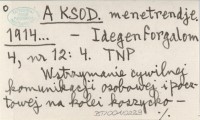 A KSOD. menetrendje.
1914... – Idegenforgalom
4, nr 12: 4. TNP
Wstrzymanie cywilnej
komunikacji osobowej i pocz-
towej na kolei koszycko –